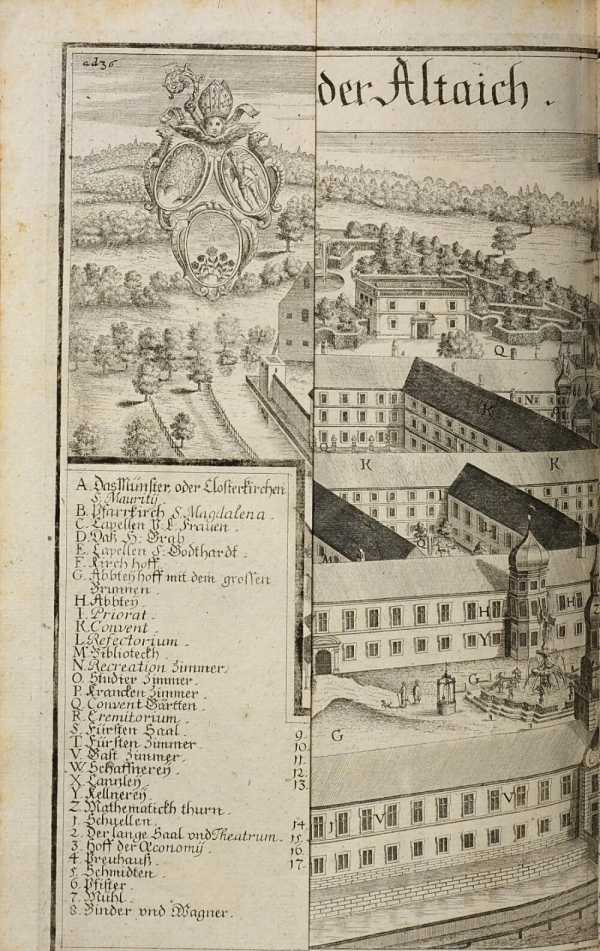 ad 36
der Altaich.
A. Das Münster, oder Closterkirchen
S. Mauritÿ.
B. Pfarrkirch S. Magdalena.
C. Capellen V. L. Frauen.
D. Daß H. Grab
E. Capellen S. Godthardt.
F. Kirchhoff.
G. Abbteÿhoff mit dem grossen
Brunnen.
H. Abbteÿ.
I. Priorat.
K. Convent.
L. Refectorium.
M. Biblioteckh.
N. Recreation Zimmer.
O. Studier Zimmer.
P. Krancken Zimmer.
Q. Convent Gärtten.
R. Eremitorium.
S. Fürsten Saal.
T. Fürsten Zimmer.
V. Gast Zimmer.
W. Schaffnereÿ.
X. Canzleÿ.
Y. Kellnereÿ.
Z. Mathematickh thurn.
1. Schuellen.
2. Der lange Saal vnd Theatrum.
3. Hoff der Œconomÿ.
4. Preuhauß.
5. Schmidten.
6. Pfister.
7. Mühl.
8. Binder vnd Wagner.
9.
10.
11.
12.
13.
14.
15.
16.
17.
Q
K
N
K
K
M
Q
H
H
Z
Y
G
G
1
V
V